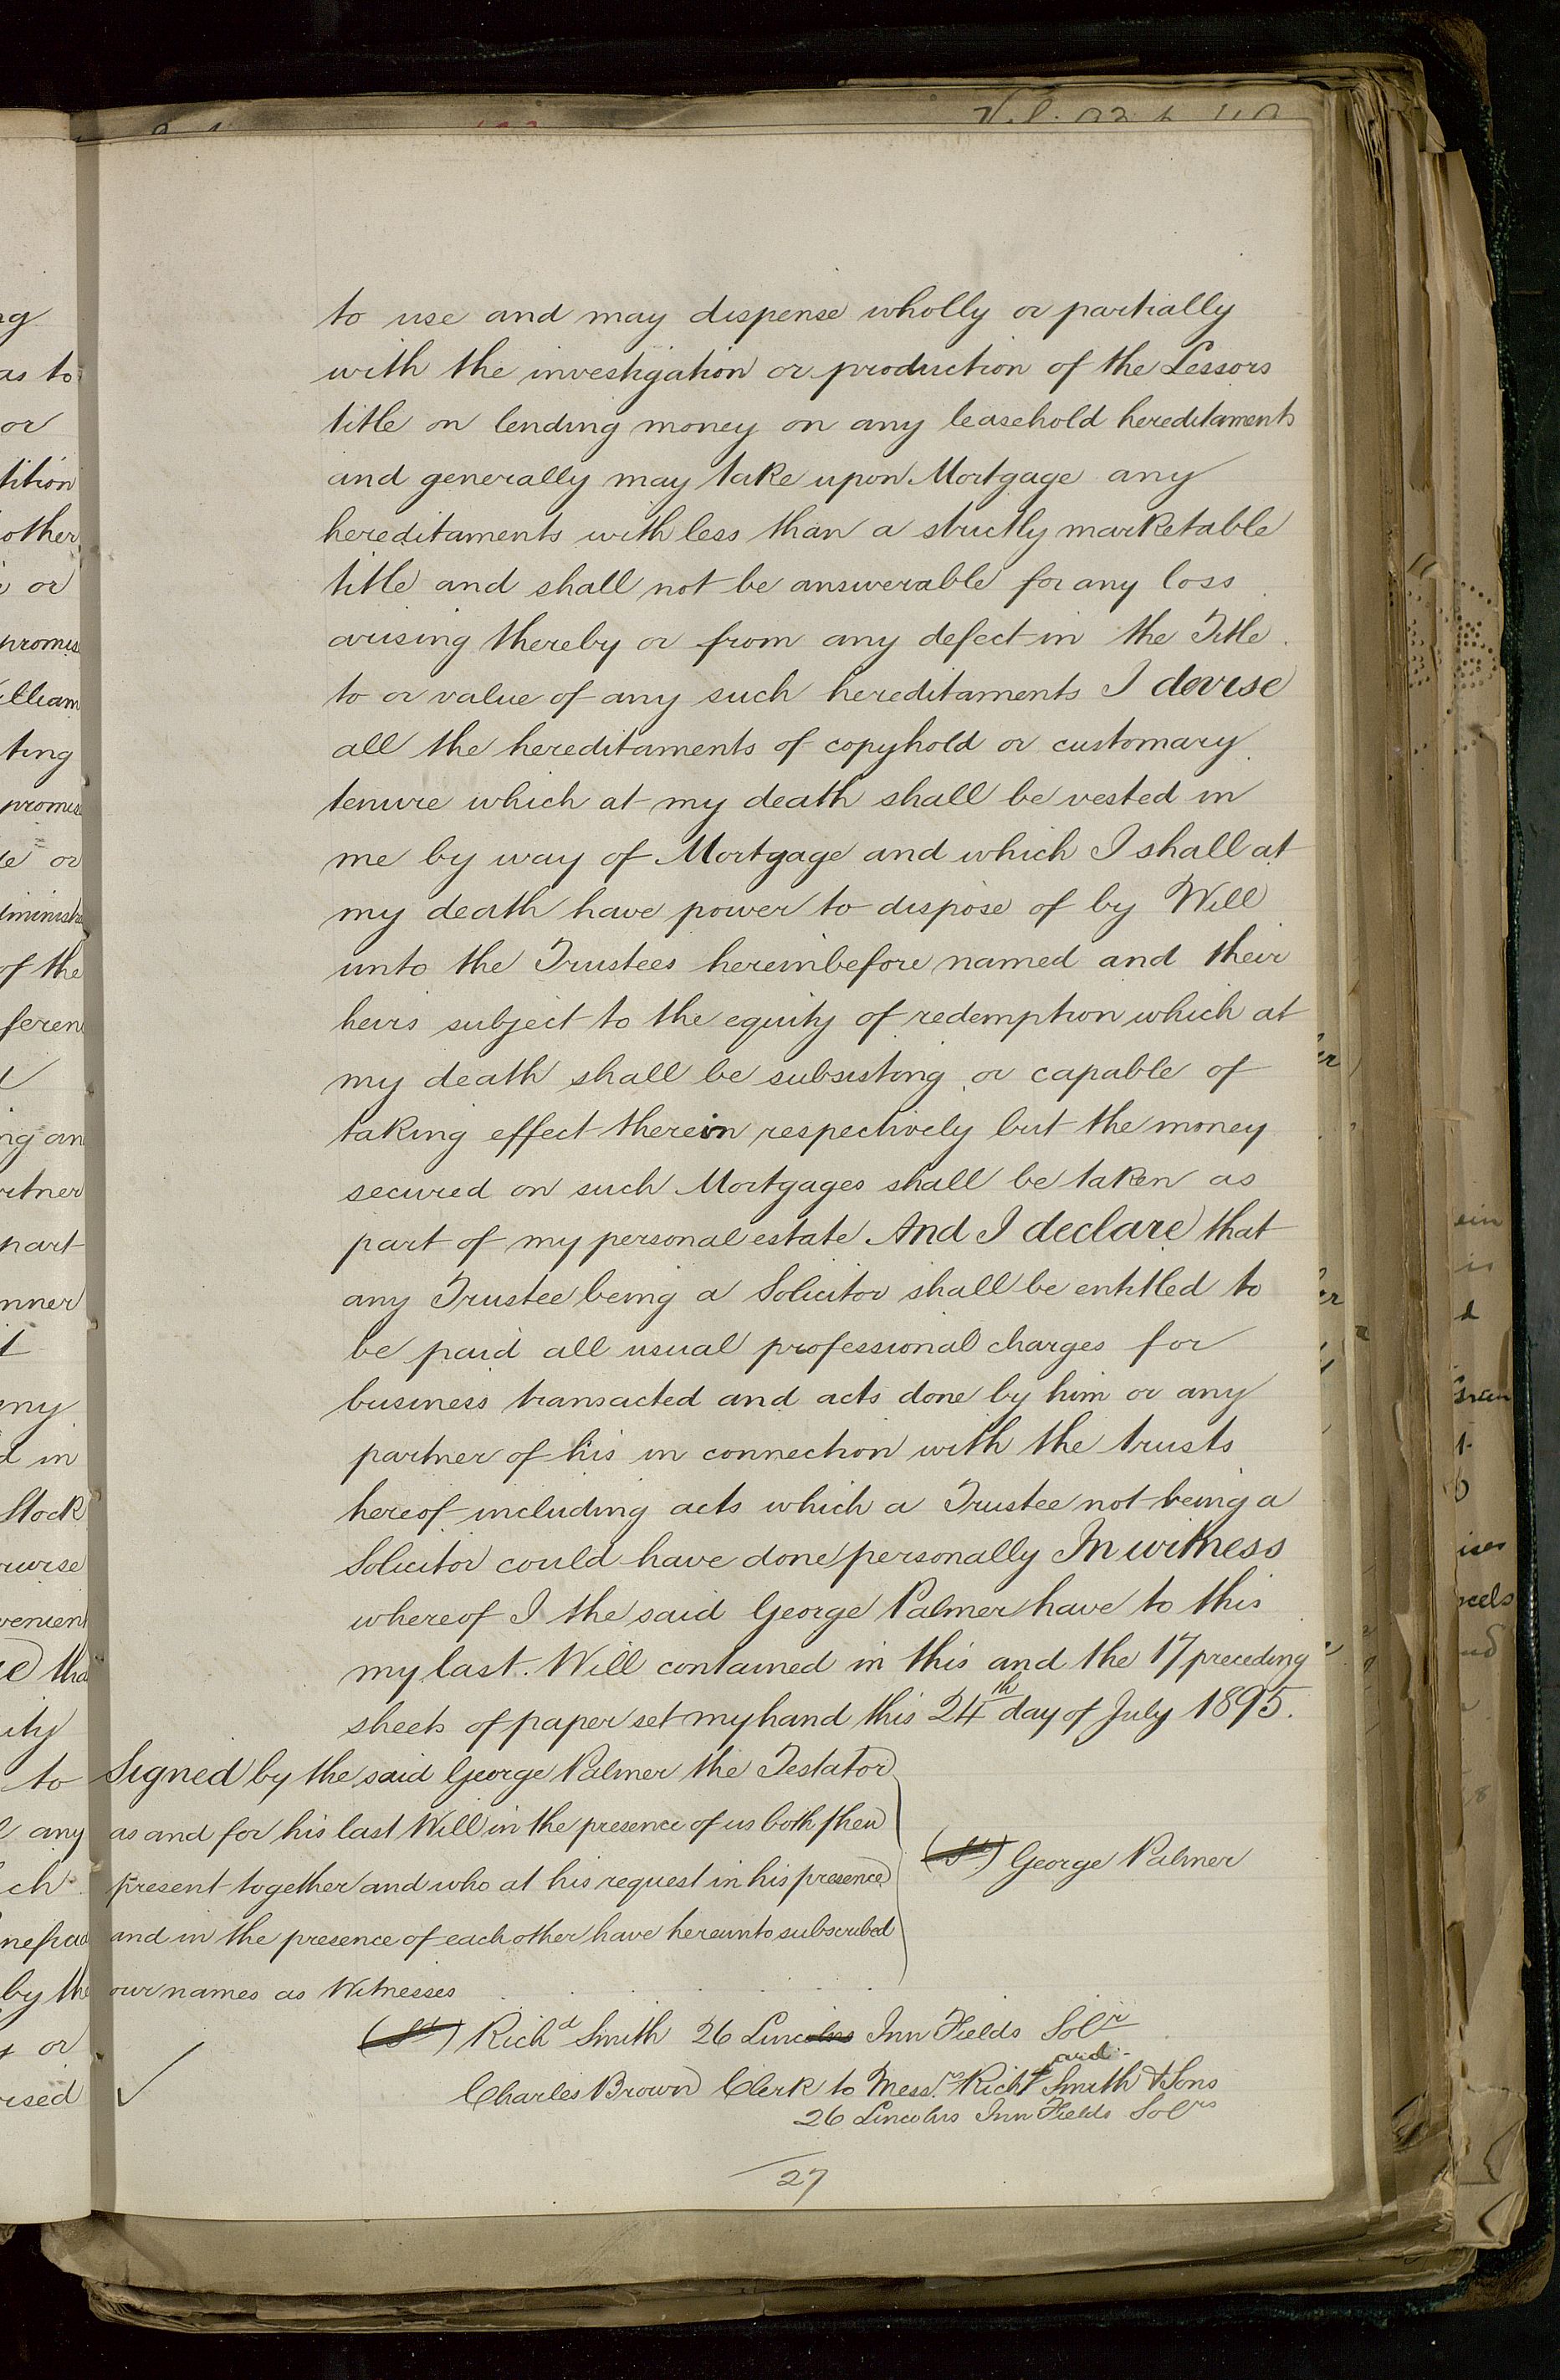 to use and may dispense wholly or partially
with the investigation or production of the Lessors
title on lending money on any leasehold hereditaments
and generally may take upon Mortgage any
hereditaments with less than a strictly marketable
title and shall not be answerable for any loss
arising thereby or from any defect in the Title
to or value of any such hereditaments I devise
all the hereditaments of copyhold or customary
tenure which at my death shall be vested in
me by way of Mortgage and which I shall at
my death have power to dispose of by Will
unto the Trustees hereinbefore named and their
heirs subject to the equity of redemption which at
my death shall be subsisting or capable of
taking effect therein respectively but the money
secured on such Mortgages shall be taken as
part of my personal estate And I declare that
any Trustee being a Solicitor shall be entitled to
be paid all usual professional charges for
business transacted and acts done by him or any
partner of his in connection with the trusts
hereof including acts which a Trustee not being a
Solicitor could have done personally In witness
whereof I the said George Palmer have to this
my last Will contained in this and the 17 preceding
sheets of paper set my hand this 24th day of July 1895.
Signed by the said George Palmer the Testator
as and for his last Will in the presence of us both then
present together and who at his request in his presence
and in the presence of each other have hereunto subscribed
our names as Witnesses
George Palmer
Richd Smith 26 Lincolns Inn Fields Solr
and
Charles Brown Clerk to Messrs Richd Smith & Sons
26 Lincolns Inn Fields Solrs
27